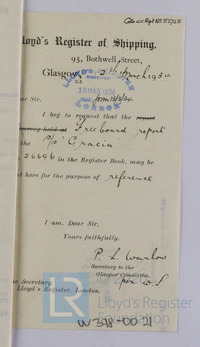 Gls Rpt No 53728
Lloyd's Register of Shipping,
95, Bothwell Street,
Glasgow, March 1934
18 MAR 1934
Dear Sir,
I beg to request that the report
Freeboard report
the P/s "Gracia
26696 in the Register Book, may be
sent here for the purpose of reference
I am, Dear Sir,
Yours faithfully,
Secretary to the
Glasgow Committee,
The Secretary,
Lloyd's Register, London.
Lloyd's Register
Foundation